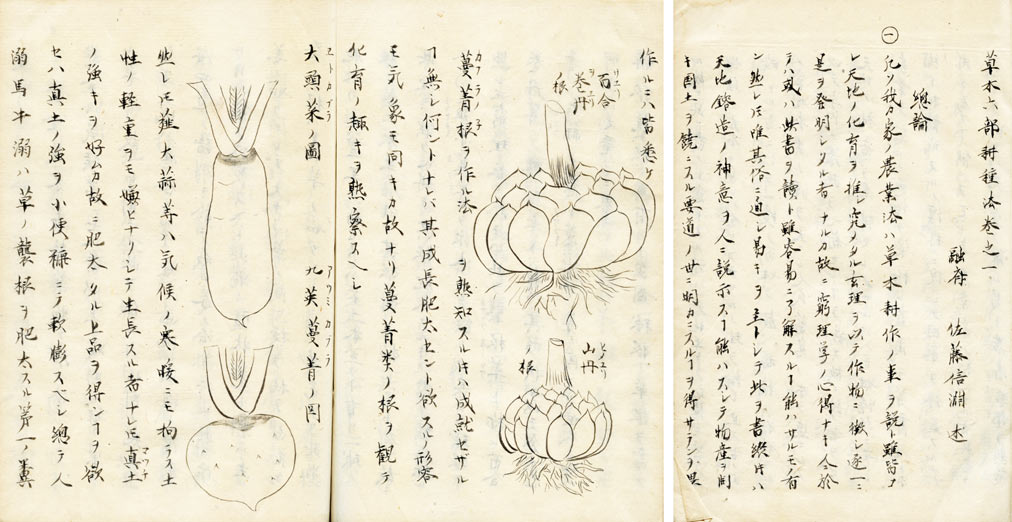 ㊀
草木六部耕種法巻之一
融斎 佐藤信淵 述
總論
凡ソ我カ家ノ農業法ハ草木耕作ノ事ヲ説ト雖皆
レ天地ノ化育ヲ推シ究メタル玄理ヲ以テ作物ニ徴シ逐一ニ
是ヲ發明シタル者ナルカ故ニ窮理学ノ心得ナキ人於
テハ或ハ此書ヲ讀ト雖容易ニ了解スルヿ能ハサルモノ有
ン然レ𪜈唯其俗ニ通シ易キヲ主トシテ此ヲ書
天地鎔造ノ神意ヲ人ニ説示スヿ能ハスシテ物産ヲ開
キ國土ヲ饒ニスル要道ノ世ニ明カニスルヿヲ得サランヲ
作ルニハ皆悉ク
百合
巻丹
根
山丹
ノ根
カブラノ子
蔓菁根ヲ作ル法 ヲ熟知スル𪜈ハ成就セサル
ヿ無シ何ントナレバ其成長肥太セント欲スルノ形容
モ気象モ同キカ故ナリ蔓菁類ノ根ヲ觀テ
化育ノ趣キヲ熟察スヘシ
大頭菜ノ圖 九英蔓菁ノ図
然レ𪜈薤大蒜等ハ気候ノ寒暖ニモ拘ラス土
性ノ軽重ヲモ嫌ヒナクシテ生長スル者ナレ𪜈真土
ノ強キヲ好ムカ故ニ肥太タル上品ヲ得ンヿヲ欲
セハ真土ノ強ヲ小便糠ニテ軟膨スベシ總テ人
溺馬牛溺ハ草ノ襲根ヲ肥太スル第一ノ糞